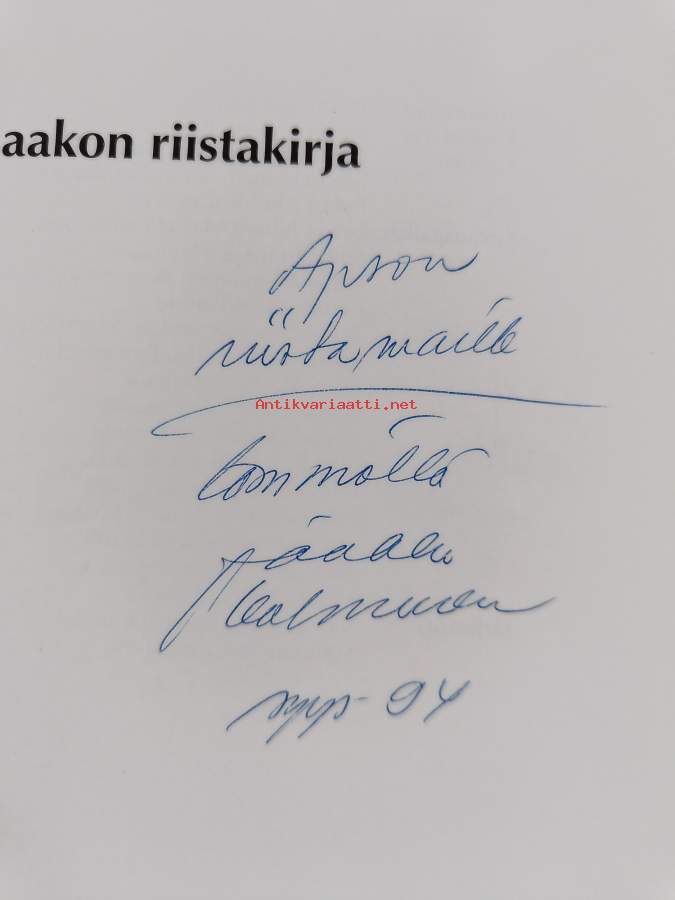 aakon riistakirja
Apson
riistamaille
Antikvariaatti.net
lämmöllä
Jaakko
Kolmonen
syys - 94